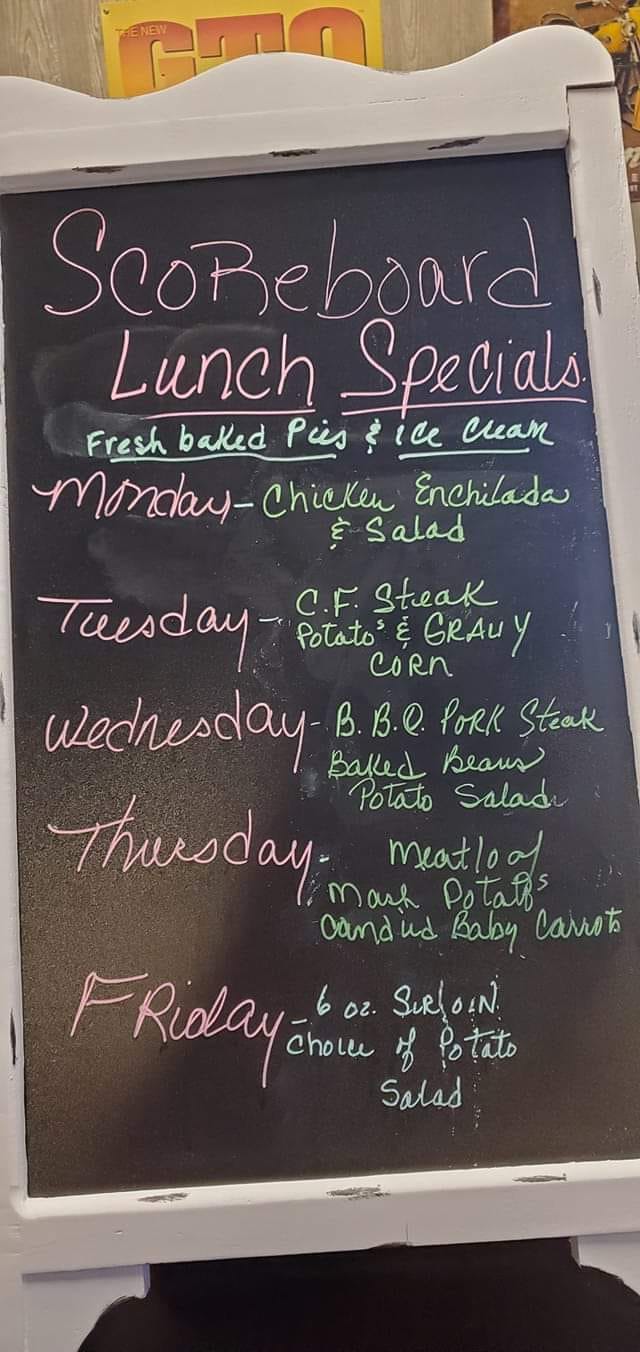 THE NEW
GTO
Scoreboard
Lunch Specials.
Fresh baked Pies & ice Cream
Monday - Chicken Enchilada
& Salad
Tuesday - C.F. Steak
Potato's & GRAVY
CORN
Wednesday - B.B.Q. PORK Steak
Baked Beans
Potato Salad
Thursday - Meatloaf
Mash Potato's
Candied Baby Carrots
FRiday - 6 oz. SiRloiN
Choice of Potato
Salad